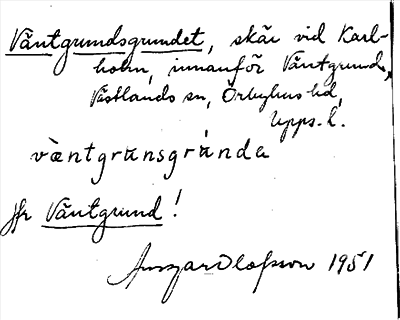 Väntgrundsgrundet, skär vid Karl-
holm, innanför Väntgrund,
Västlands sn, Örbyhus hd,
Upps. l.
väntgrunsgrúnda
jfr Väntgrund!
Ansgar Olofsson 1951